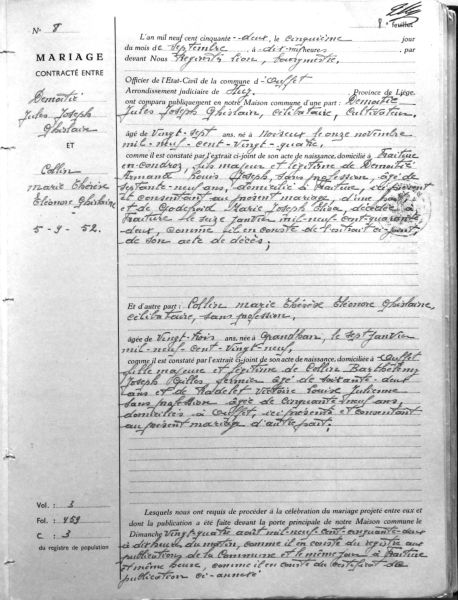 N° 8
MARIAGE
CONTRACTÉ ENTRE
Demoitié
Jules Joseph
Ghislain
ET
Collin
Marie Thérèse
Eléonore Ghislaine
5 - 9 - 52.
Vol. : 3
Fol. : 459
C. : 3
du registre de population
8. Feuillet
L'an mil neuf cent cinquante-deux, le cinquième jour
du mois de Septembre à dix heures par
devant Nous Lion, bourgmestre,
Officier de l'Etat-Civil de la commune d'Ouffet
Arrondissement judiciaire de Huy, Province de Liége.
ont comparu publiquement en notre Maison commune d'une part : Demoitié
Jules Joseph Ghislain, célibataire, cultivateur,
âgé de vingt-sept ans, né à Noiseux le onze novembre
mil-neuf-cent-vingt-quatre,
comme il est constaté par l'extrait ci-joint de son acte de naissance, domicilié à Fraiture
en Condroz, fils majeur et légitime de Demoitié
Armand Louis Joseph, sans profession, âgé de
septante-neuf ans, domicilié à Fraiture, ici présent
et consentant au présent mariage, d'une part,
et de Godefroid Marie Joseph Elisa, décédée à
Fraiture le seize janvier mil-neuf-cent-quarante-
deux, comme il en conste de l'extrait ci-joint
de son acte de décès ;
Et d'autre part : Collin Marie Thérèse Eléonore Ghislaine,
célibataire, sans profession,
âgée de vingt-trois ans, née à Grandhan, le sept janvier
mil-neuf-cent-vingt-neuf,
comme il est constaté par l'extrait ci-joint de son acte de naissance, domiciliée à Ouffet
fille majeure et légitime de Collin Barthélemy
Joseph Gilles, fermier âgé de soixante-deux
ans et de Hardelet Victoire Louise Julienne
sans profession âgée de cinquante-neuf ans,
domiciliés à Ouffet, ici présents et consentant
au présent mariage d'autre part ;
Lesquels nous ont requis de procéder à la célébration du mariage projeté entre eux et
dont la publication a été faite devant la porte principale de notre Maison commune le
Dimanche vingt-quatre août mil-neuf-cent-cinquante-deux
à dix heures du matin, comme il en conste du registre aux
publications de la Commune et le même jour à Fraiture
et même heure, comme il en conste du certificat de
publication ci-annexé